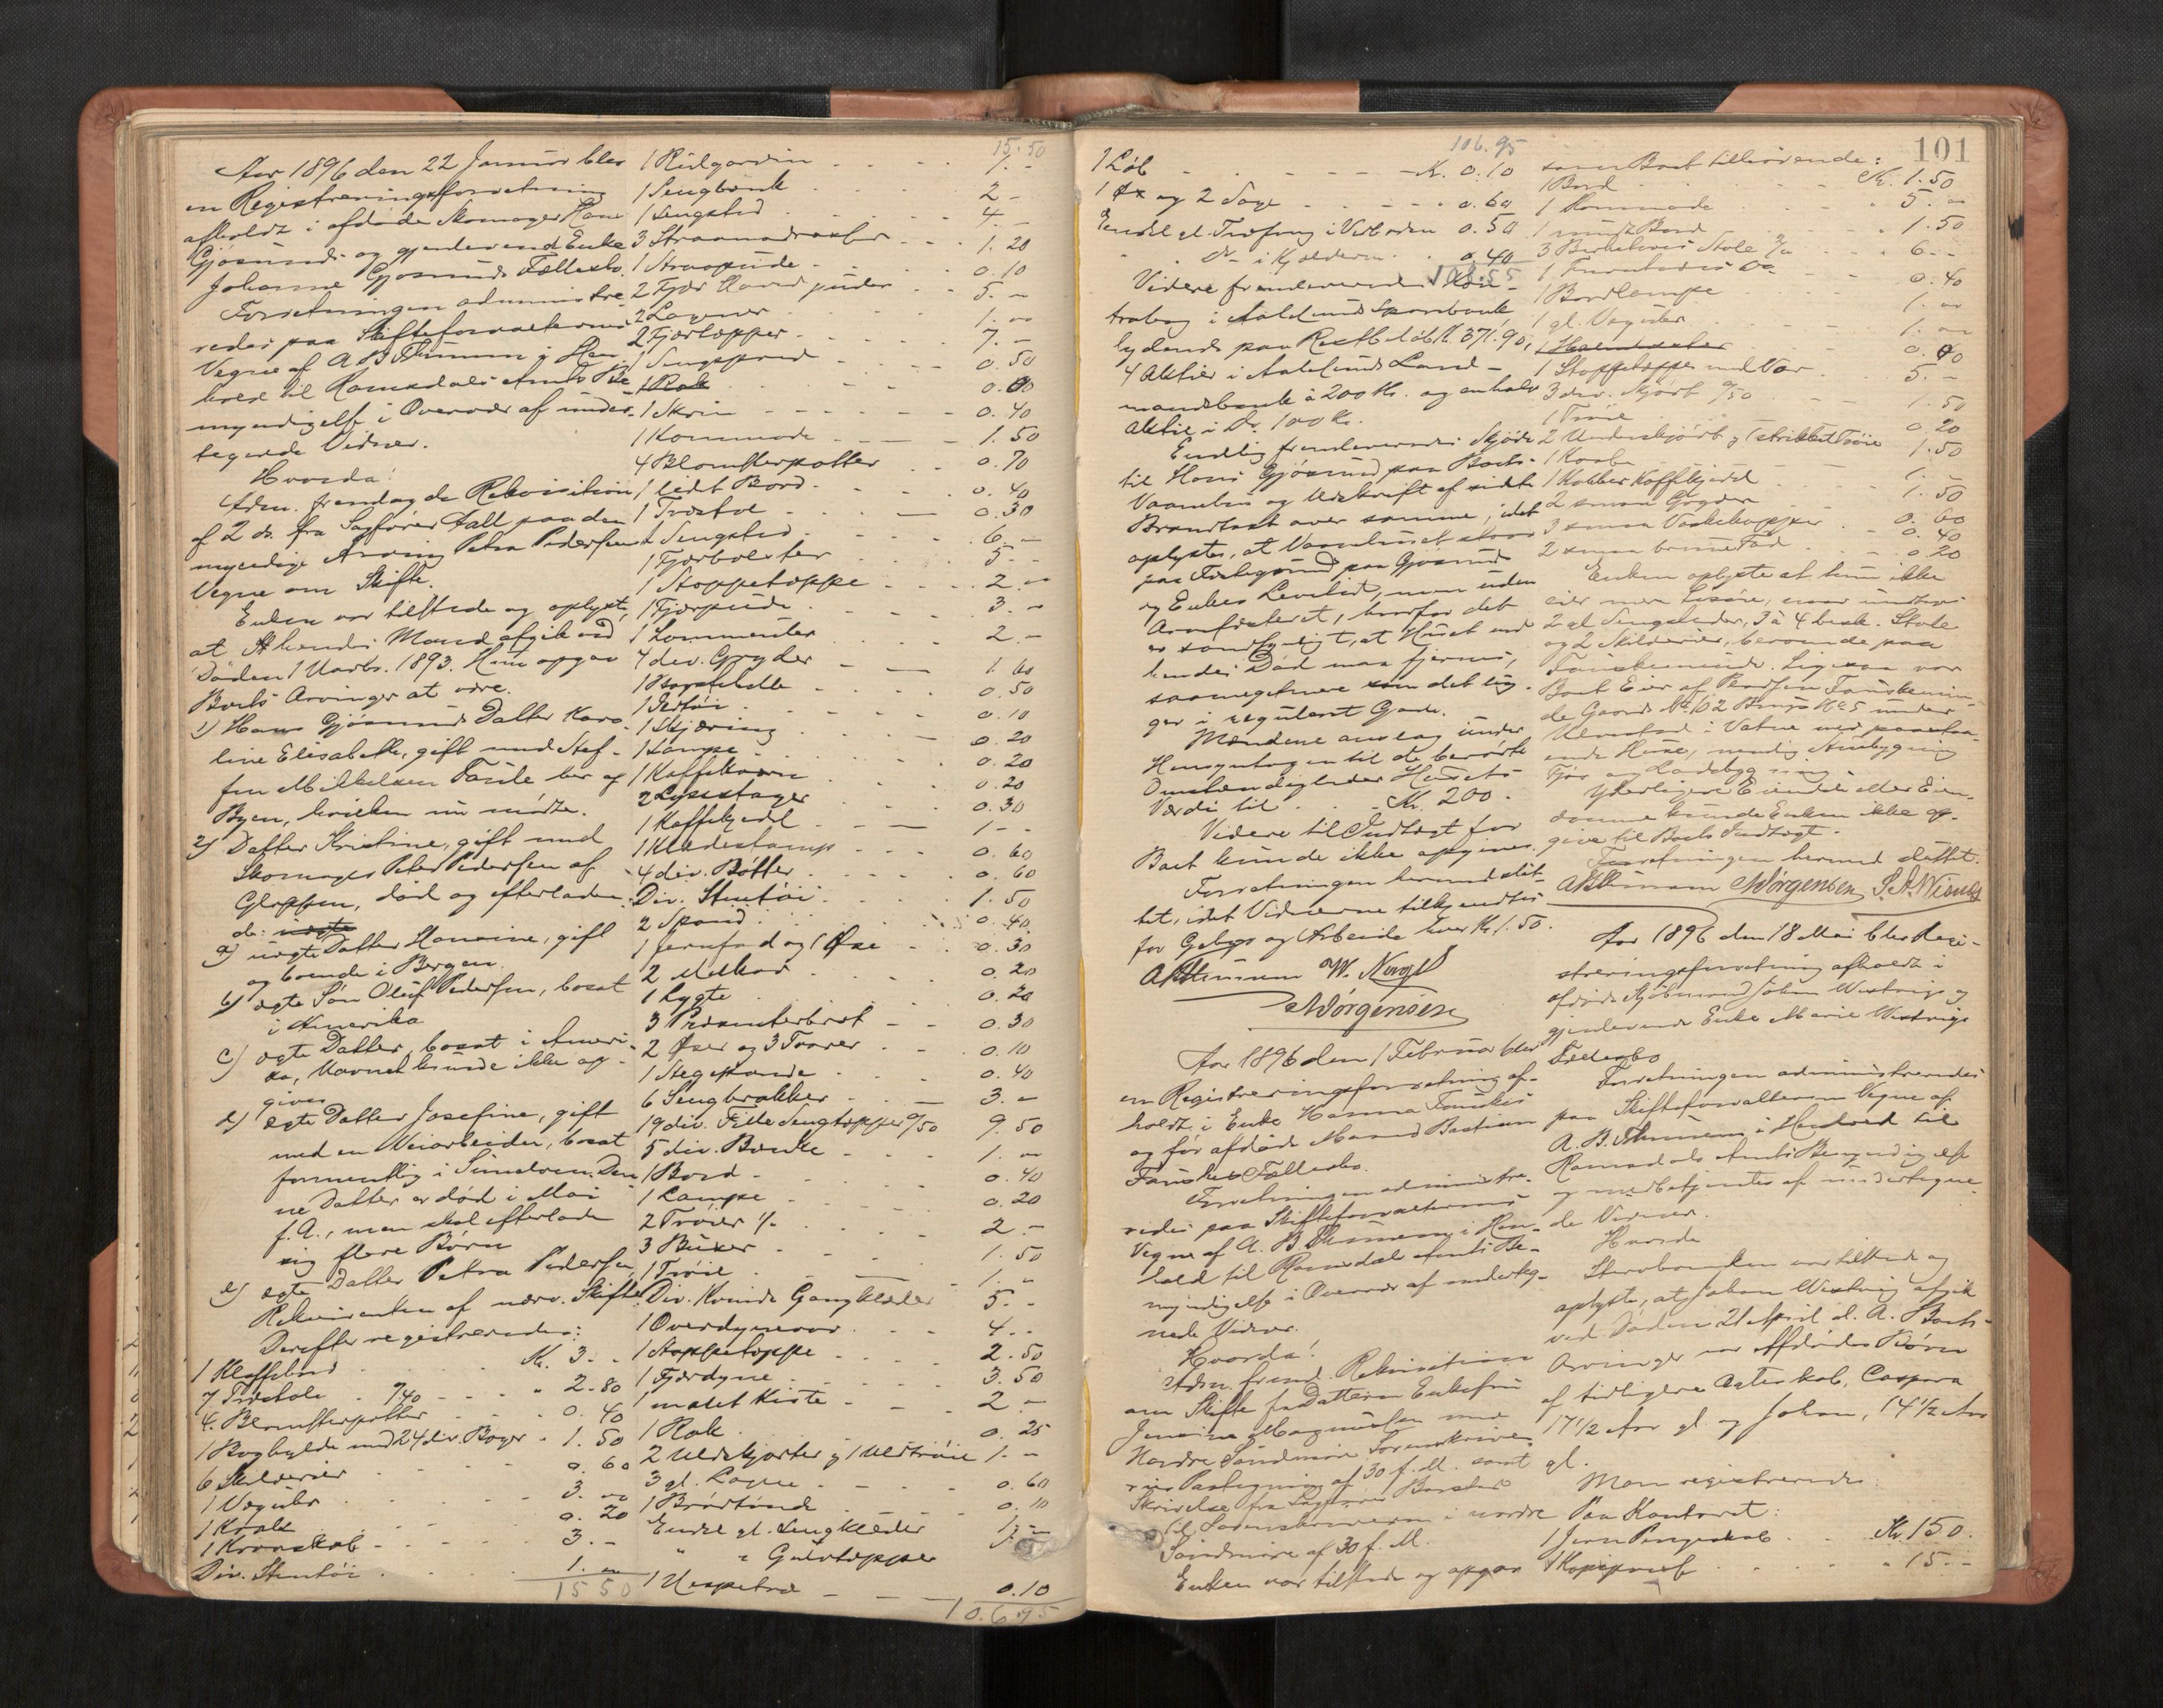 Aar 1896 den 22 Januar blev
en Registreringsforretning
afholdt i afdøde Skomager Hans
Gjøsunds og gjenlevende Enke
Johanne Gjøsunds Fællesbo.
Forretningen administre-
redes paa Skifteforvalterens
Vegne af A B Thinnem i Hen-
hold til Romsdals Amts Be-
myndigelse i Overvær af under-
tegnede Vidner.
Hvorda!
Adm. fremlagde Rekvisition
af 2 ds. fra Sagfører Aall paa den
myndige Arving Petra Pedersens
Vegne om Skifte.
Enken var tilstede og oplyste,
at hendes Mand afgik ved
Døden 1 Marts 1893. Hun opgav
Boets Arvinger at være.
1) Hans Gjøsunds Datter Karo-
line Elisabeth, gift med Stef-
fen Mikkelsen Taule her af
Byen, hvilken nu mødte.
2) Datter Kristine, gift med
Skomager Peter Pedersen af
Gloppen, død og efterladen-
de: uægte
a) uægte Datter Hansine, gift
og boende i Bergen.
b) ægte Søn Oluf Pedersen, bosat
i Amerika
c) ægte Datter, bosat i Ameri-
ka, Navnet kunde ikke op-
gives
d) ægte Datter Josefine, gift
med en Veiarbeider, bosat
formentlig i Den-
ne Datter er død i Mai
f. A., men skal efterlade
sig flere Børn
e) ægte Datter Petra Pedersen,
Rekvirenten af nærv. Skifte.
Derefter registreredes:
1 Klaffebord Kr. 3.-
7 Træstole 7/40 " 2.80
4 Blomsterpotter 0.40
1 Boghylde med 24 div. Bøger 1.50
6 Skilderier 0.60
1 Væguhr 3.-
1 Krak 0.20
1 Kroskab 3.-
Div. Stentøi 1.-
15 50
15.50
1 Rulgardin 1.-
1 Sengbænk 2-
1 Sengsted 4-
3 Straamadrasser 1.20
1 Straapude 0.10
2 Fjær Hovedpuder 5.-
2 Lagener 1.-
2 Fjærtæpper 7.-
1 Sengspred 0.50
1 Rak 0.00
1 Skrin 0.40
1 Kommode 1.50
4 Blomsterpotter 0.70
1 lidet Bord 0.40
1 Træstol 0.30
1 Sengsted 6.-
1 Fjærbolster 5.-
1 Stoppetæppe 2.-
1 Fjærpude 3.-
1 Lommeuhr 2.-
4 div. Gryder 1.60
0.50
0.10
0.20
1 Lampe 0.20
1 Kaffekværn 0.20
2 Lysestager 0.30
1 Kaffekjedel 1.-
1 Klædestamp 0.60
4 div. Bøtter 0.60
Div. Stentøi 1.50
2 Spand 0.40
1 Jernfad og 1 Øse 0.30
2 0.20
1 Lygte 0.20
3 Præsenterbret 0.30
2 Øser og 3 Tvarer 0.10
1 Stegepande 0.40
6 3.-
19 div. Fille Sengtæpper 0/50 9.50
5 div. Bænke 1.-
1 Bord 0.40
1 Lampe 0.20
2 Trøier 1/- 2.-
3 Buxer 1.50
1 Trøie 1.-
Div. Kvinde Gangklæder 5.-
1 Overdynevar 4.-
1 Stoppetæppe 2.50
1 Fjærdyne 3.50
1 malet Kiste 2.-
1 Rok 0.25
2 Uldskjorter og 1 Uldtrøie 1.-
3 gl. Lagen 0.60
1 Brødtønde 0.10
Endel gl. Sengklæder 1.-
" " Gulvtæpper
1 Hespetræ 0.10
106.95
101
106.95
1 Løb Kr. 0.10
1 Øx og 2 Sage 0.60
Endel gl. Træfang i Vedboden 0.50
" do- i Kjælderen 0.40
108.55
Videre fremlevered
trabog i Aalesunds Sparebank
lydende paa Restbeløb Kr. 371.90,
4 Aktier i Aalesunds Land-
mandsbank à 200 Kr. og en halv
Aktie i Do. 100 Kr.
Endlig fremleveredes Skjøde
til Hans Gjøsund paa Boets
Vaanhus og Udskrift af sidste
Brandtaxt over samme, idet
oplystes, at Vaanhuset staar
paa Fæstegrund paa Gjøsunds
og Enkes Levetid, men uden
Arvefæsteret, hvorfor det
er sandsynligt, at Huset ved
hendes Død maa fjernes,
saameget mere som det lig-
ger i reguleret Gade.
Mændene ansaa under
Hensyntagen til de berørte
Omstændigheder Husets
Værdi til Kr. 200.
Videre til Indtægt for
Boet kunde ikke opgives.
Forretningen hermed slut-
tet, idet Vidnerne tilkjendtes
for Gebyr og Arbeide hver Kr. 1.50.
A B Thinnem W. Nagel
N Jørgensen
Aar 1896 den 1 Februar blev
en Registreringsforretning af-
holdt i Enke Hanna Fauskes
og før afdøde Mand Bastian
Fauskes Fællesbo.
Forretningen administre-
redes paa Skifteforvalterens
Vegne af A. B Thinnem i Hen-
hold til Romsdals Amts Be-
myndigelse i Overvær af underteg-
nede Vidner.
Hvorda!
Adm. freml. Rekvisition
om Skifte fra Datteren Enkefru
Jensine Magnussen med
Nordre Søndmøre Sorenskrive-
ries Paategning af 30 f. M. samt
Skrivelse fra Sagfører
til Sorenskriveren i nordre
Søndmøre af 30 f. M.
Enken var tilstede og opgav
som Boet tilhørende:
1 Bord Kr. 1.50
1 Kommode 5.-
1 rundt Bord 1.50
3 Birketræs Stole 2/- 6.-
1 Furutræs Do 0.40
1 Bordlampe 1.-
1 gl. Væguhr 1.-
0.00
1 Stoppetæppe med Var 5.-
3 div. Skjørt 0/50 1.50
1 Trøie 0.20
2 Underskjørt og 1 strikket Trøie 1.50
1 Kaabe 1.-
1 Kobber Kaffekjedel 1.50
2 smaa Gryder 0.60
3 smaa Vaskekopper 0.40
2 smaa brune Fad 0.20
Enken oplyste at hun ikke
eier mere Løsøre, naar undta-
2 gl. Sengsteder, 3 à 4 brukt. Stole
og 2 Skilderier, beroende paa
Fauskeminde. Ligesaa var
Boet Eier af Pladsen Fauskemin-
de Gaards No 102 Brugs No 5 under
Ulvestad i Vatne med paastaa-
ende Huse, nemlig Stubygning
Fjøs og Ladebygning
Yderligere Eiendele eller Eien-
domme kunde Enken ikke op-
give til Boets Indtægt.
Forretningen hermed sluttet.
A B Thinnem N Jørgensen P. A. Wisnes
Aar 1896 den 18 Mai blev Regi-
streringsforretning afholdt i
afdøde Kjøbmand Johan Westrvigs og
gjenlevende Enke Marie Westrvigs
Fællesbo
Forretningen administreredes
paa Skifteforvalterens Vegne af
A. B. Thinnem i Henhold til
Romsdals Amts Bemyndigelse
og medbetjentes af undertegne-
de Vidner.
Hvorda
Stervboenken var tilstede og
oplyste, at Johan Westrvig afgik
ved Døden 21 April d. A. Boets
Arvinger var Afdødes Børn
af tidligere Ægteskab, Caspara
17 1/2 Aar gl. og Johan, 14 1/2 Aar
gl.
Man registrerede:
Paa Kontoret:
1 Jern Pengeskab Kr. 150.
1 Kopipresse " 15.-